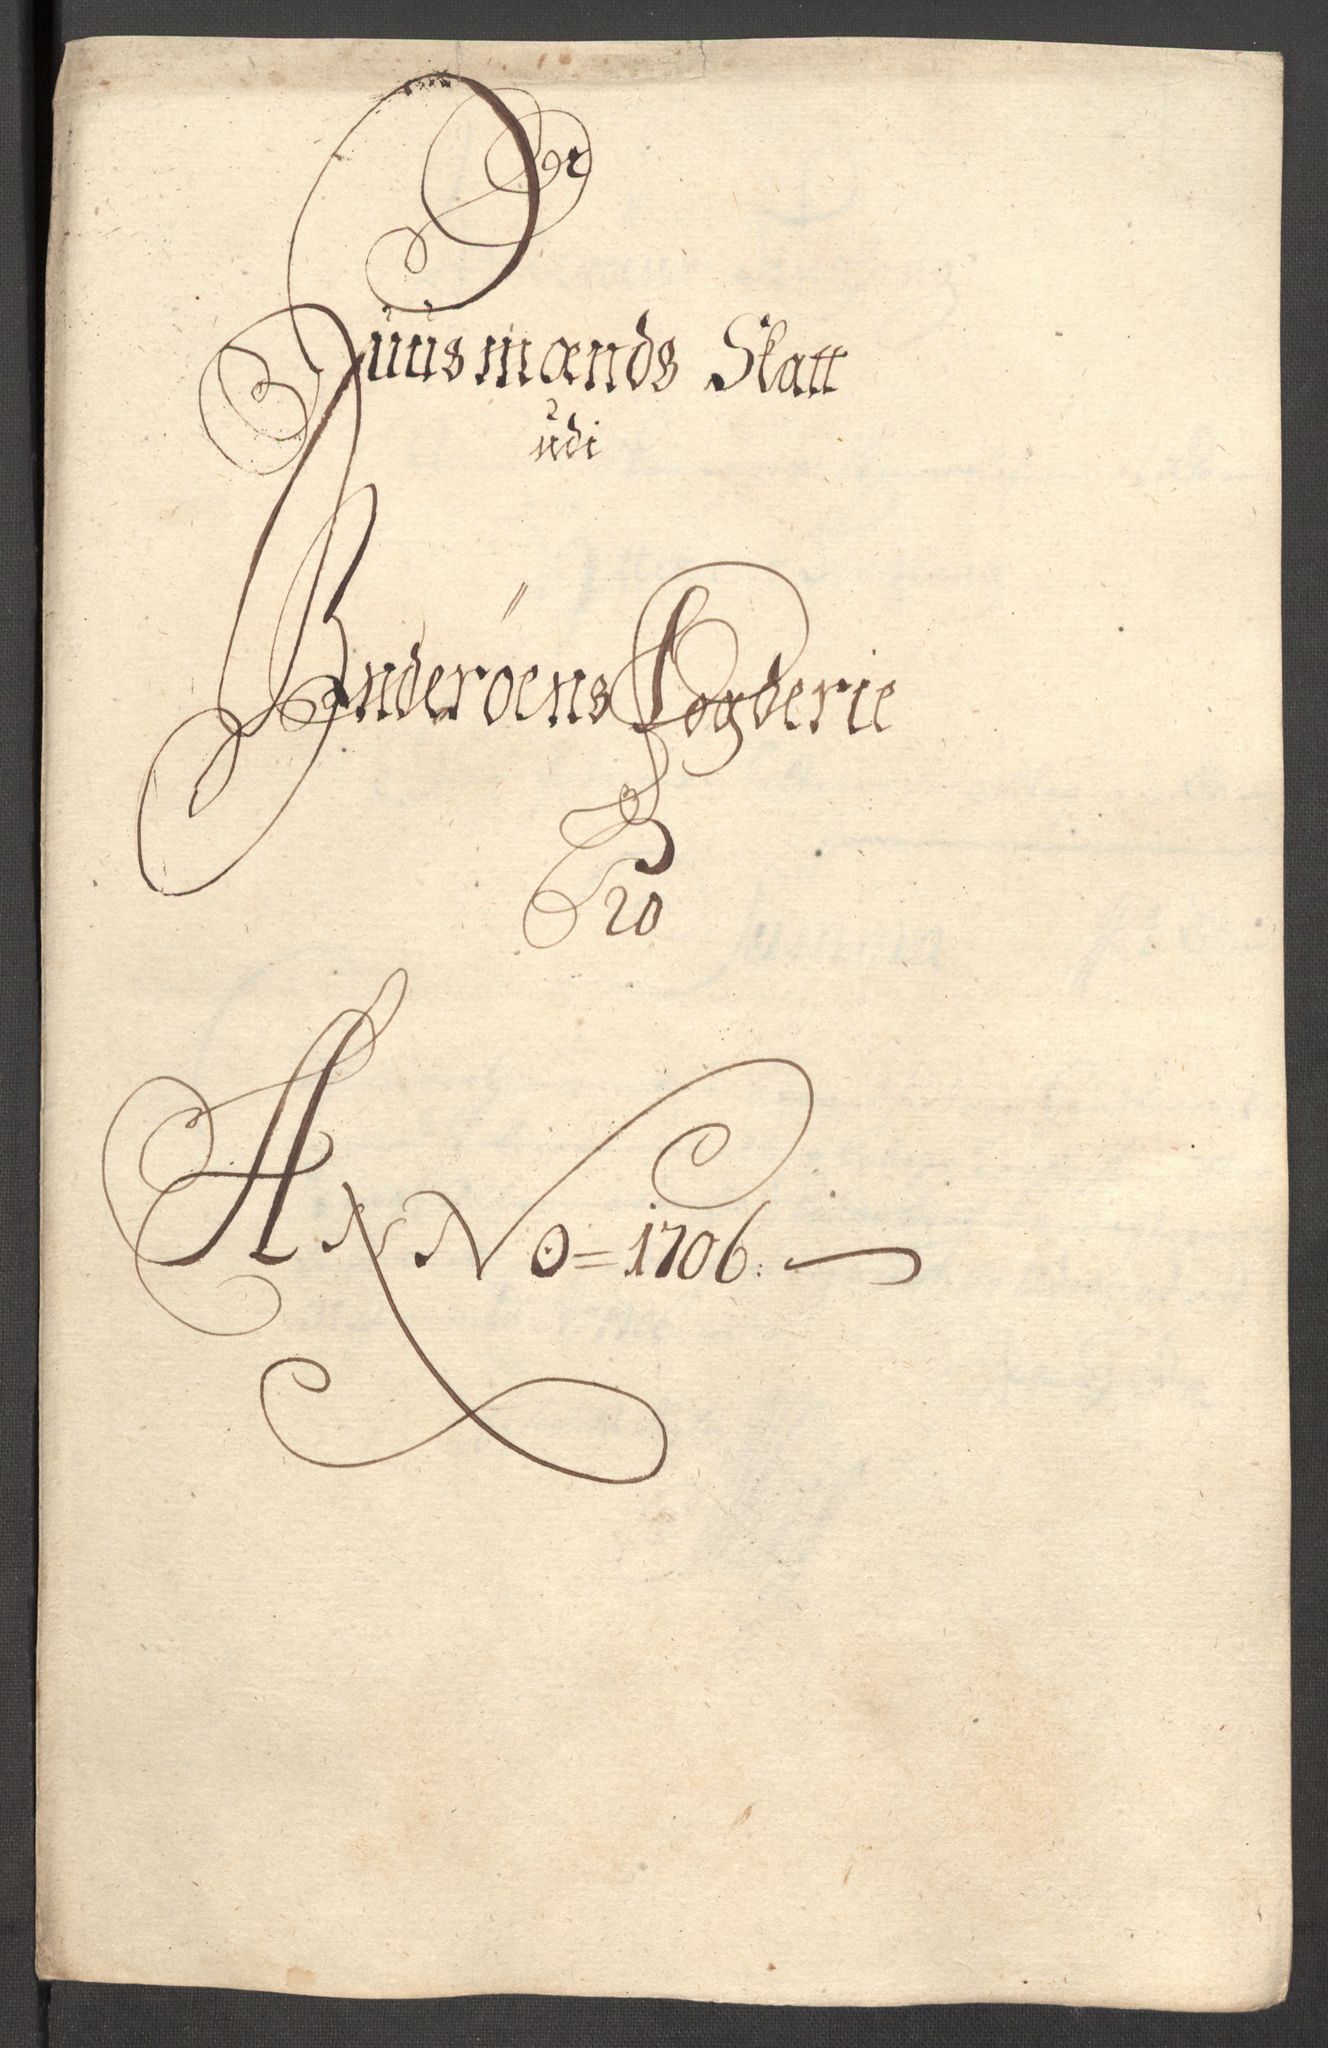 Huusmænds Skatt
udi
Inderöens Fogderie
Pro
ANNO = 1706.